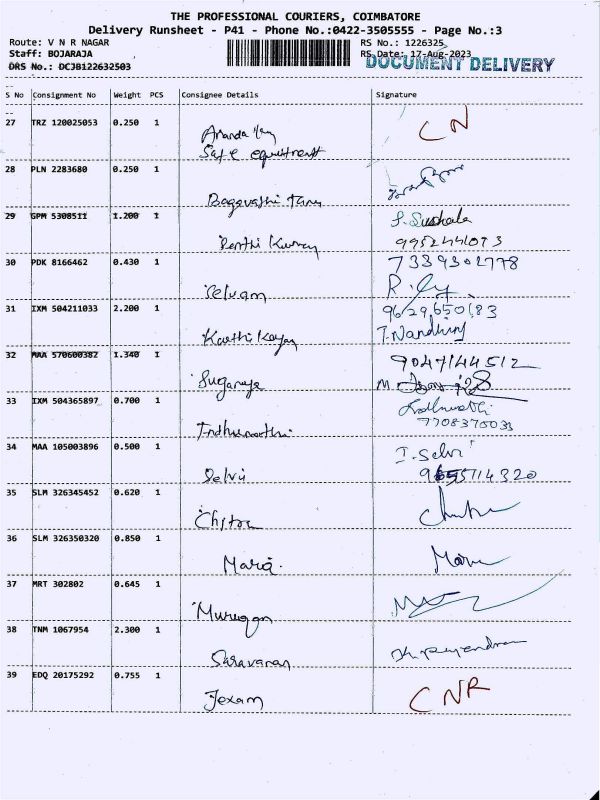 THE PROFESSIONAL COURIERS, COIMBATORE
Delivery Runsheet - P41 - Phone No.:0422-3505555 - Page No.:3
Route: V N R NAGAR RS No.: 1226325
Staff: BOJARAJA RS Date: 17-Aug-2023
DRS No.: DCJB122632503 DOCUMENT DELIVERY
S No Consignment No Weight PCS Consignee Details Signature
27 TRZ 120025053 0.250 1 CN
Safe
28 PLN 2283680 0.250 1
Bagavathi
29 GPM 5308511 1.200 1 S. Sushala
9952441073
30 PDK 8166462 0.430 1 7339302778
Selvam
31 IXM 504211033 2.200 1 9629650183
Karthikayan
32 MAA 570600382 1.340 1 9047144512
M.
33 IXM 504365897 0.700 1
7708376033
34 MAA 105003896 0.500 1 I. Selvi
Selvi 9655114320
35 SLM 326345452 0.620 1
Chitra
36 SLM 326350320 0.850 1
Maria.
37 MRT 302802 0.645 1
Murugan
38 TNM 1067954 2.300 1 K. Rajendran
Saravanan
39 EDQ 20175292 0.755 1 CNR
Jexam